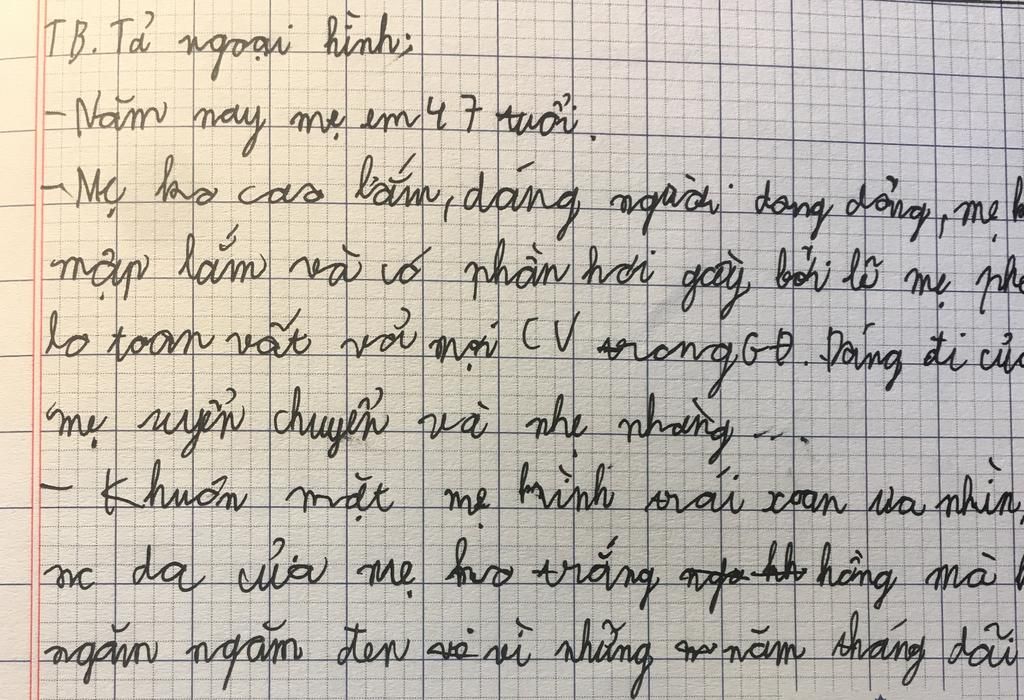 TB. Tả ngoại hình:
- Năm nay mẹ em 47 tuổi.
- Mẹ ko cao lắm, dáng người dong dỏng, mẹ
mập lắm và có phần hơi gầy bởi lẽ mẹ
lo toan vất vả mọi CV trong GĐ. Dáng đi của
mẹ uyển chuyển và nhẹ nhàng ...
- Khuôn mặt mẹ hình trái xoan ưa nhìn,
nc da của mẹ ko trắng hồng mà
ngăm ngăm đen vì những năm tháng dãi